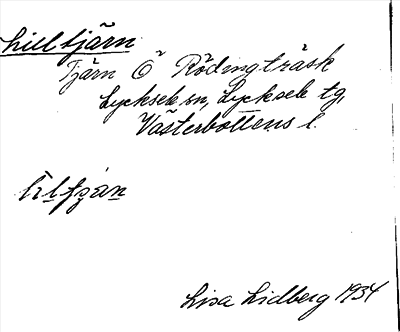 Lilltjärn
Tjärn Ö Rödingträsk
Lycksele sn, Lycksele tg,
Västerbottens l.
Lisa Lidberg 1934